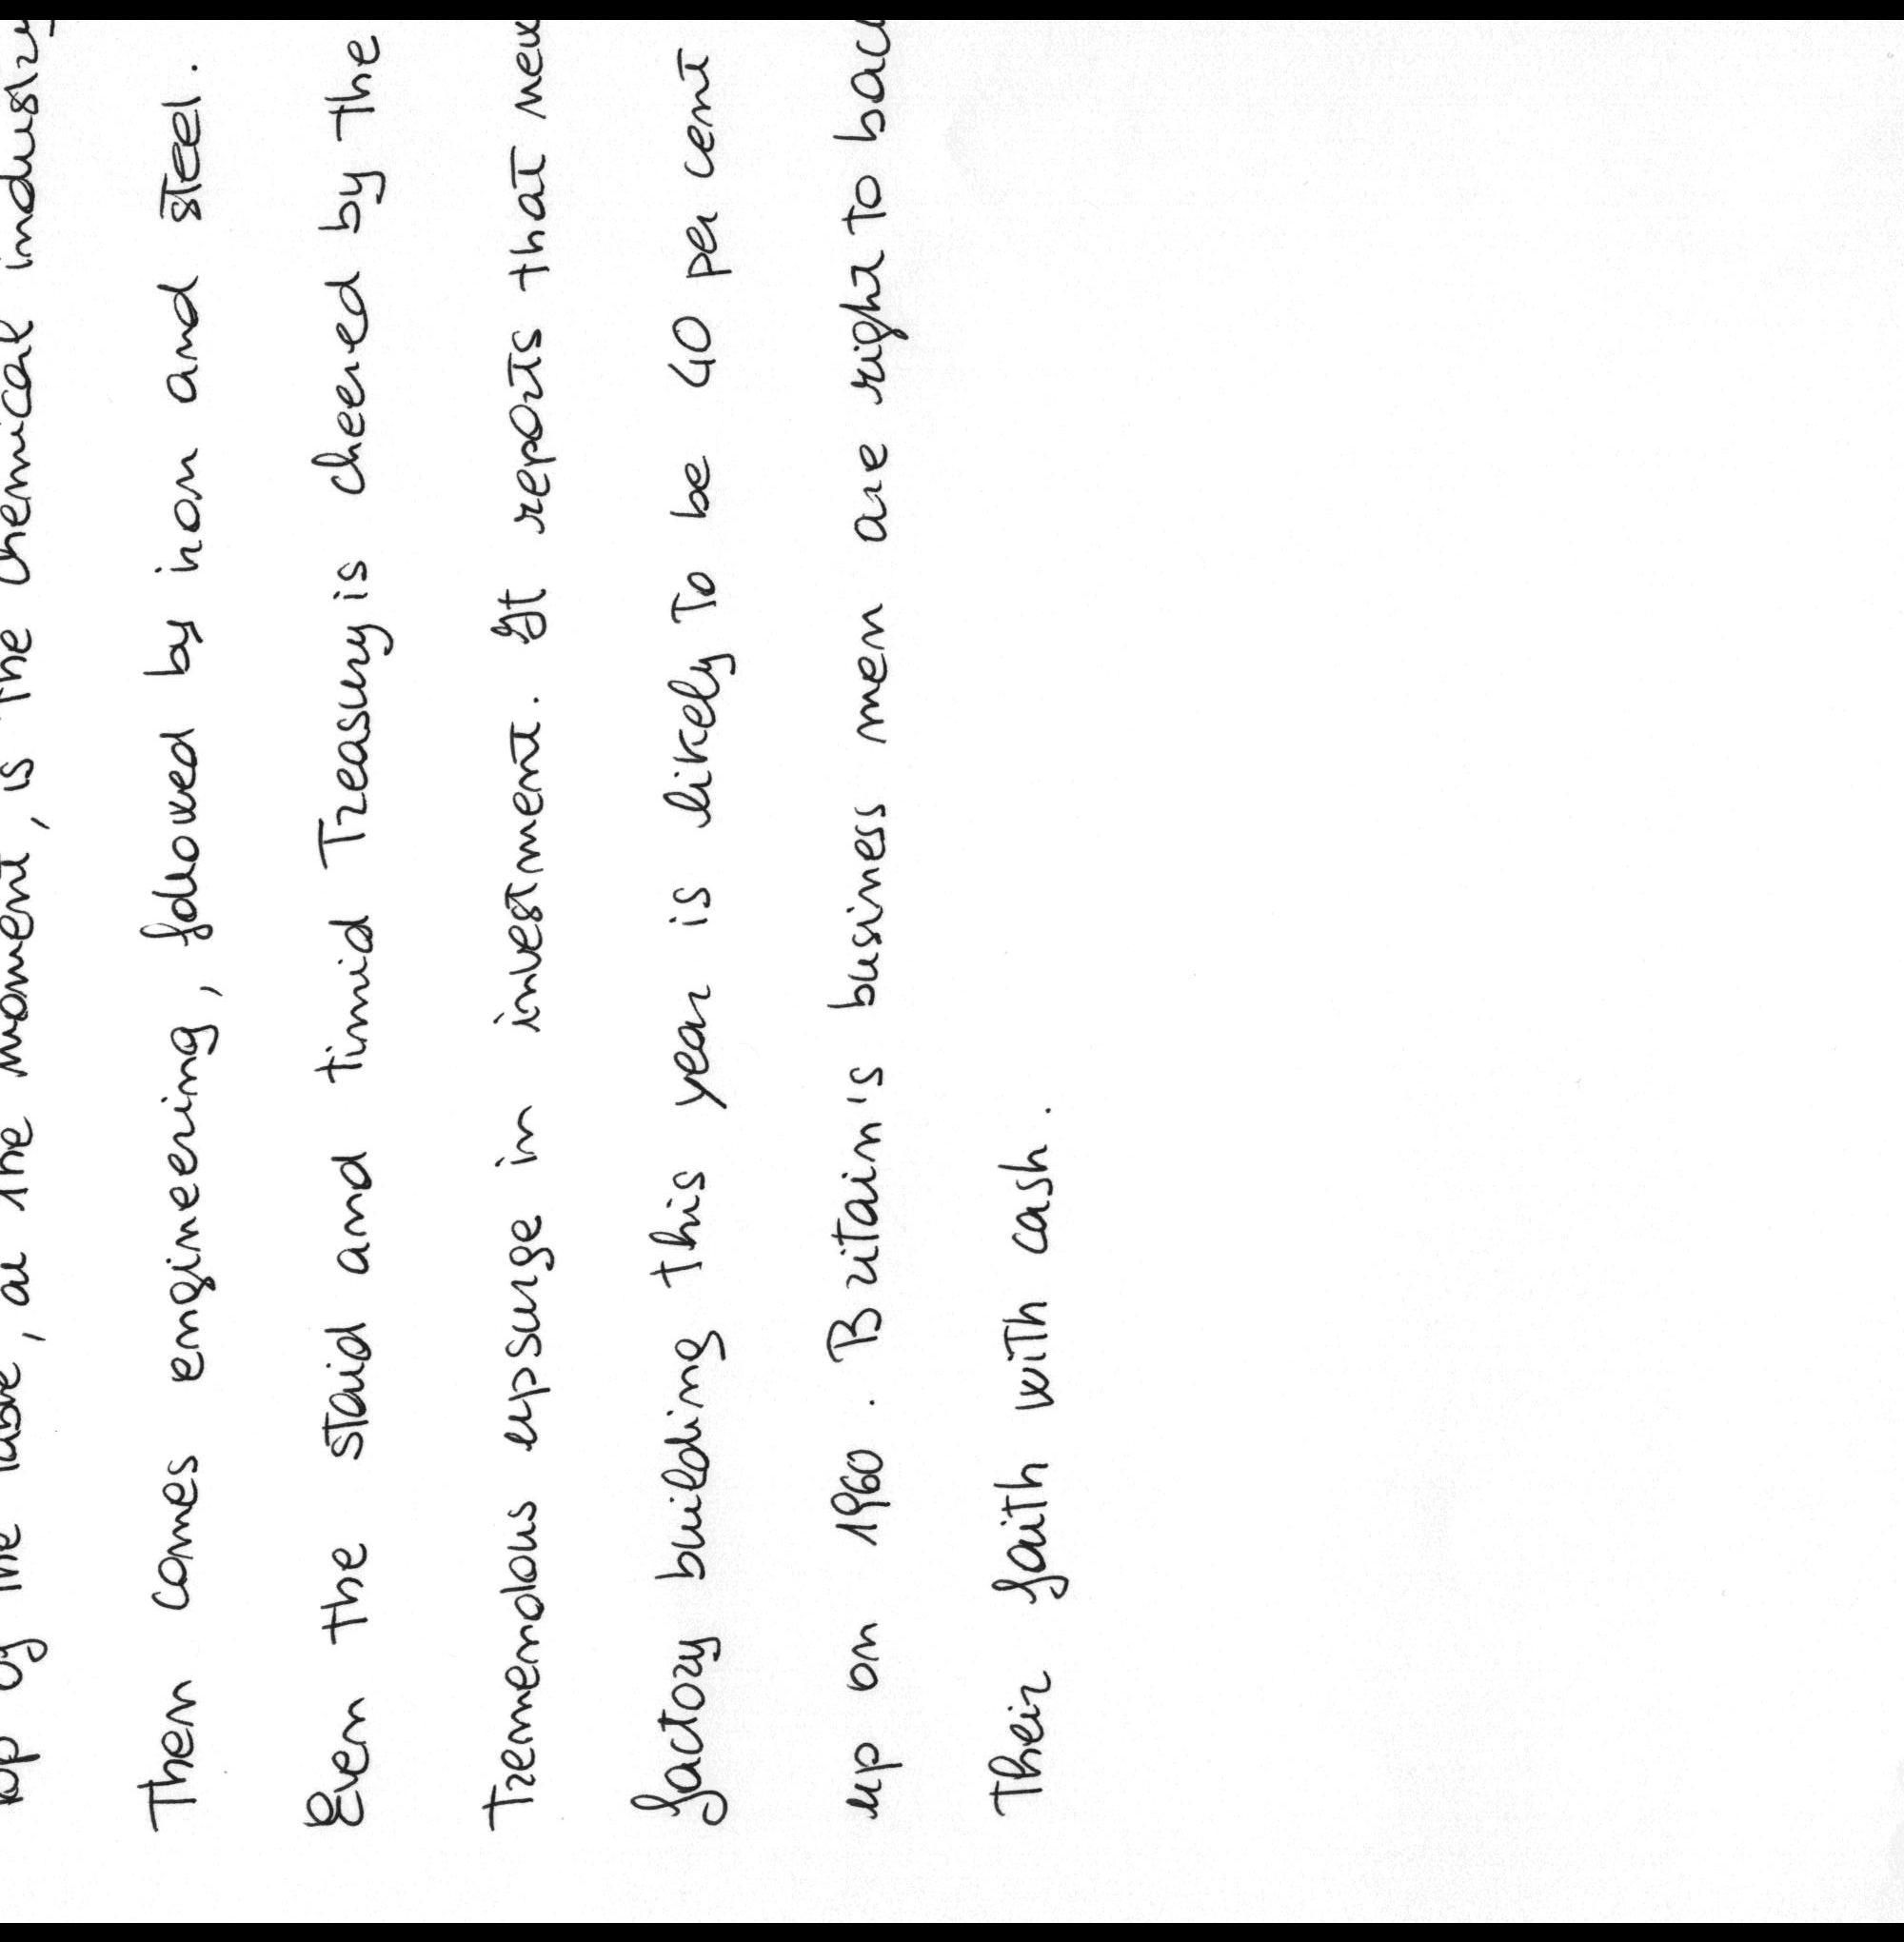 top of the table, at the moment, is the chemical industry
Then comes engineering, followed by iron and steel.
Even the staid and timid Treasury is cheered by the
Tremendous upsurge in investment. It reports that new
factory building this year is likely to be 40 per cent
up on 1960. Britain's business men are right to back
Their faith with cash.